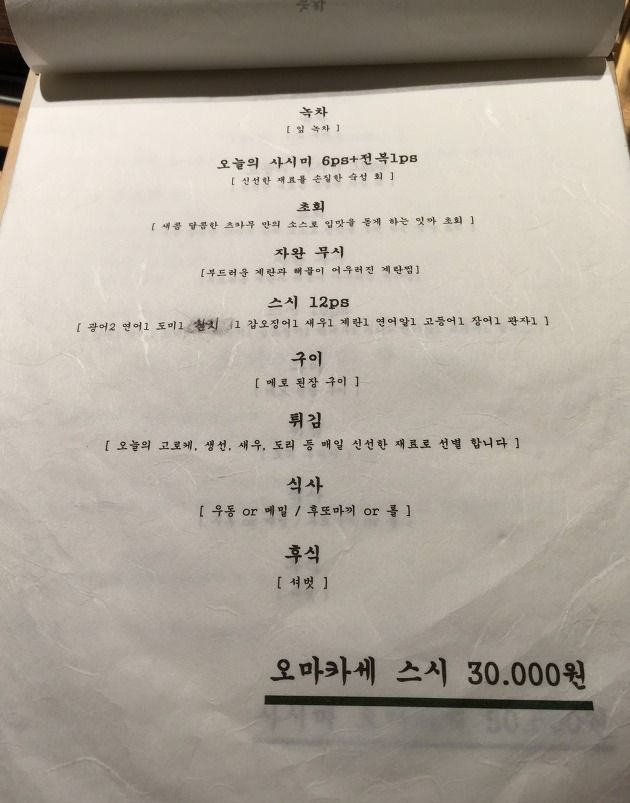 녹차
[ 잎 녹차 ]
오늘의 사시미 6ps+전복1ps
[ 신선한 재료를 손질한 숙성 회 ]
초회
[ 새콤 달콤한 츠카무 만의 소스로 입맛을 돋게 하는 잇까 초회 ]
자완 무시
[부드러운 계란과 해물이 어우러진 계란찜]
스시 12ps
[ 광어2 연어1 도미1 참치 1 갑오징어1 새우1 계란1 연어알1 고등어1 장어1 관자1 ]
구이
[ 메로 된장 구이 ]
튀김
[ 오늘의 고로케, 생선, 새우, 도리 등 매일 신선한 재료로 선별 합니다 ]
식사
[ 우동 or 메밀 / 후또마끼 or 롤 ]
후식
[ 셔벗 ]
오마카세 스시 30.000원